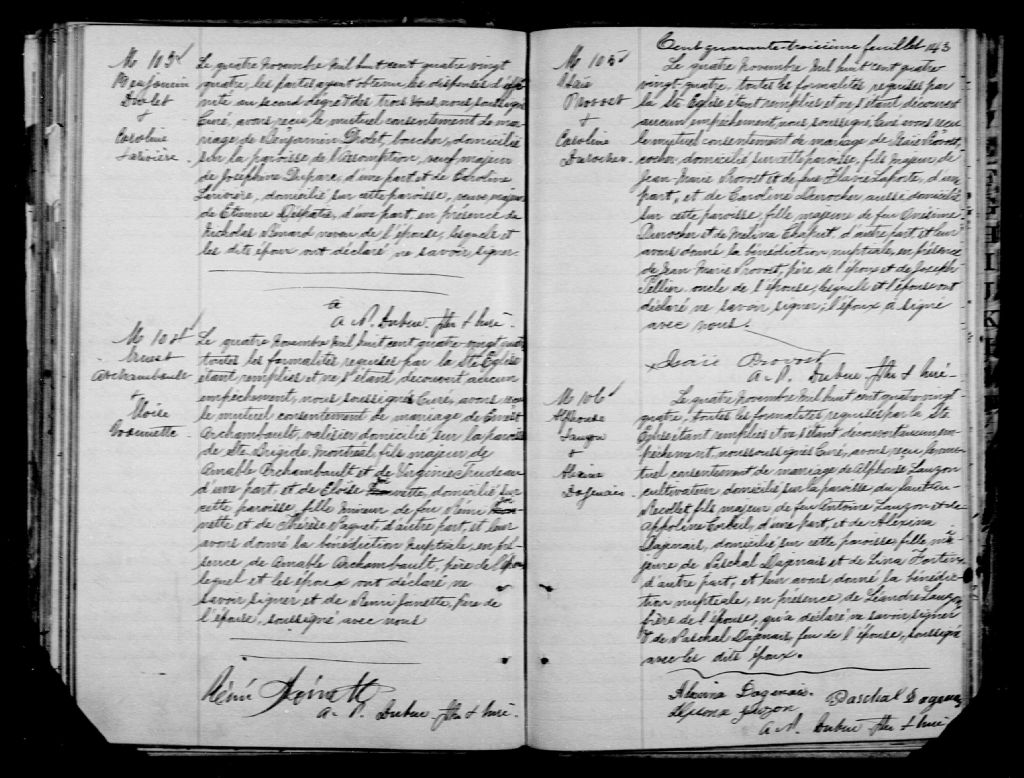 M 103
Benjamin
Drolet
+
Caroline
Larivière.
Le quatre novembre mil huit cent quatre vingt
quatre, les parties ayant obtenu les dispenses d'affi-
nité au second degré des trois bans, nous soussigné
Curé, avons reçu le mutuel consentement de ma-
riage de Benjamin Drolet, boucher, domicilié
sur la paroisse de l'Assomption, veuf majeur
de Josephine Dupare, d'une part et de Caroline
Larivière, domicilié sur cette paroisse, veuve majeure
de Etienne Despatis, d'une part, en présence de
Nicholas Benard neveu de l'épouse, lesquels et
les dits époux ont déclaré ne savoir signer
A. P. Dubuc. Ptre & Curé.
M 104
Ernest
Archambault
+
Eloise
Gosinette
Le quatre novembre mil huit cent quatre vingt quatre
toutes les formalités requises par la Ste Eglise
étant remplies et ne s'étant decouvert aucun
empêchement, nous soussigné Curé, avons reçu
le mutuel consentement de mariage de Ernest
Archambault, valisier domicilié sur la paroisse
de Ste Brigide Montréal, fils majeur de
Amable Archambault et de Virginie Trudeau
d'une part, et de Eloise domicilié sur
cette paroisse, fille mineur de feu Rémi
nette et de Thérèse Paquet, d'autre part, et leur
avons donné la bénédiction nuptiale, en pré-
sence, de Amable Archambault, père de l'époux
lequel et les époux ont déclaré ne
savoir signer et de Remi Joinette, frère de
l'épouse, soussigné avec nous
Rémi Joinette
A. P. Dubuc Ptre & Curé.
Cent quarante troisième feuillet 143
M 105
Isaie
Provost
+
Caroline
Durocher
Le quatre novembre mil huit cent quatre
vingt-quatre, toutes les formalités requises par
la Ste Eglise étant remplies et ne s'étant découvert
aucun empêchement, nous soussigné, Curé avons reçu
le mutuel consentement de mariage de Isaïe Provost,
cocher, domicilié sur cette paroisse, fils majeur de
Jean Marie Provost et de feue Flavie Laporte, d'une
part, et de Caroline Durocher aussi domicilié
sur cette paroisse, fille majeure de feu Onésime
Durocher et de Melina Chaput, d'autre part et leur
avons donné la bénédiction nuptiale, en présence
de Jean Marie Provost, père de l'époux et de Joseph
Pellier oncle de l'épouse, lesquels et l'épouse ont
déclaré ne savoir signer; l'époux a signé
avec nous.
Isaïe Provost
A. P. Dubuc Ptre & Curé
M 106
Alphonse
Lauzon
+
Alexina
Dagenais
Le quatre novembre mil huit cent quatre vingt
quatre, toutes les formalités requises par la Ste
Eglise étant remplies et ne s'étant découvert aucun em-
pêchement, nous soussigné Curé, avons reçu le mu-
tuel consentement de mariage de Alphonse Lauzon
cultivateur, domicilié sur la paroisse du Sault au
Recollet, fils majeur de feu Antoine Lauzon et de
Appoline Corbeil, d'une part, et de Alexina
Dagenais, domicilié sur cette paroisse, fille ma-
jeure de Paschal Dagenais et de Lina Fortin
d'autre part, et leur avons donné la bénédic-
tion nuptiale, en présence de Léandre Lauzon
frère de l'épouse, qu'a déclaré ne savoir signer
& de Paschal Dagenais, feu de l'épouse, soussigné
avec les dits époux.
Alexina Dagenais. Paschal Dagenais
Lauzon
A. P. Dubuc Ptre & Curé